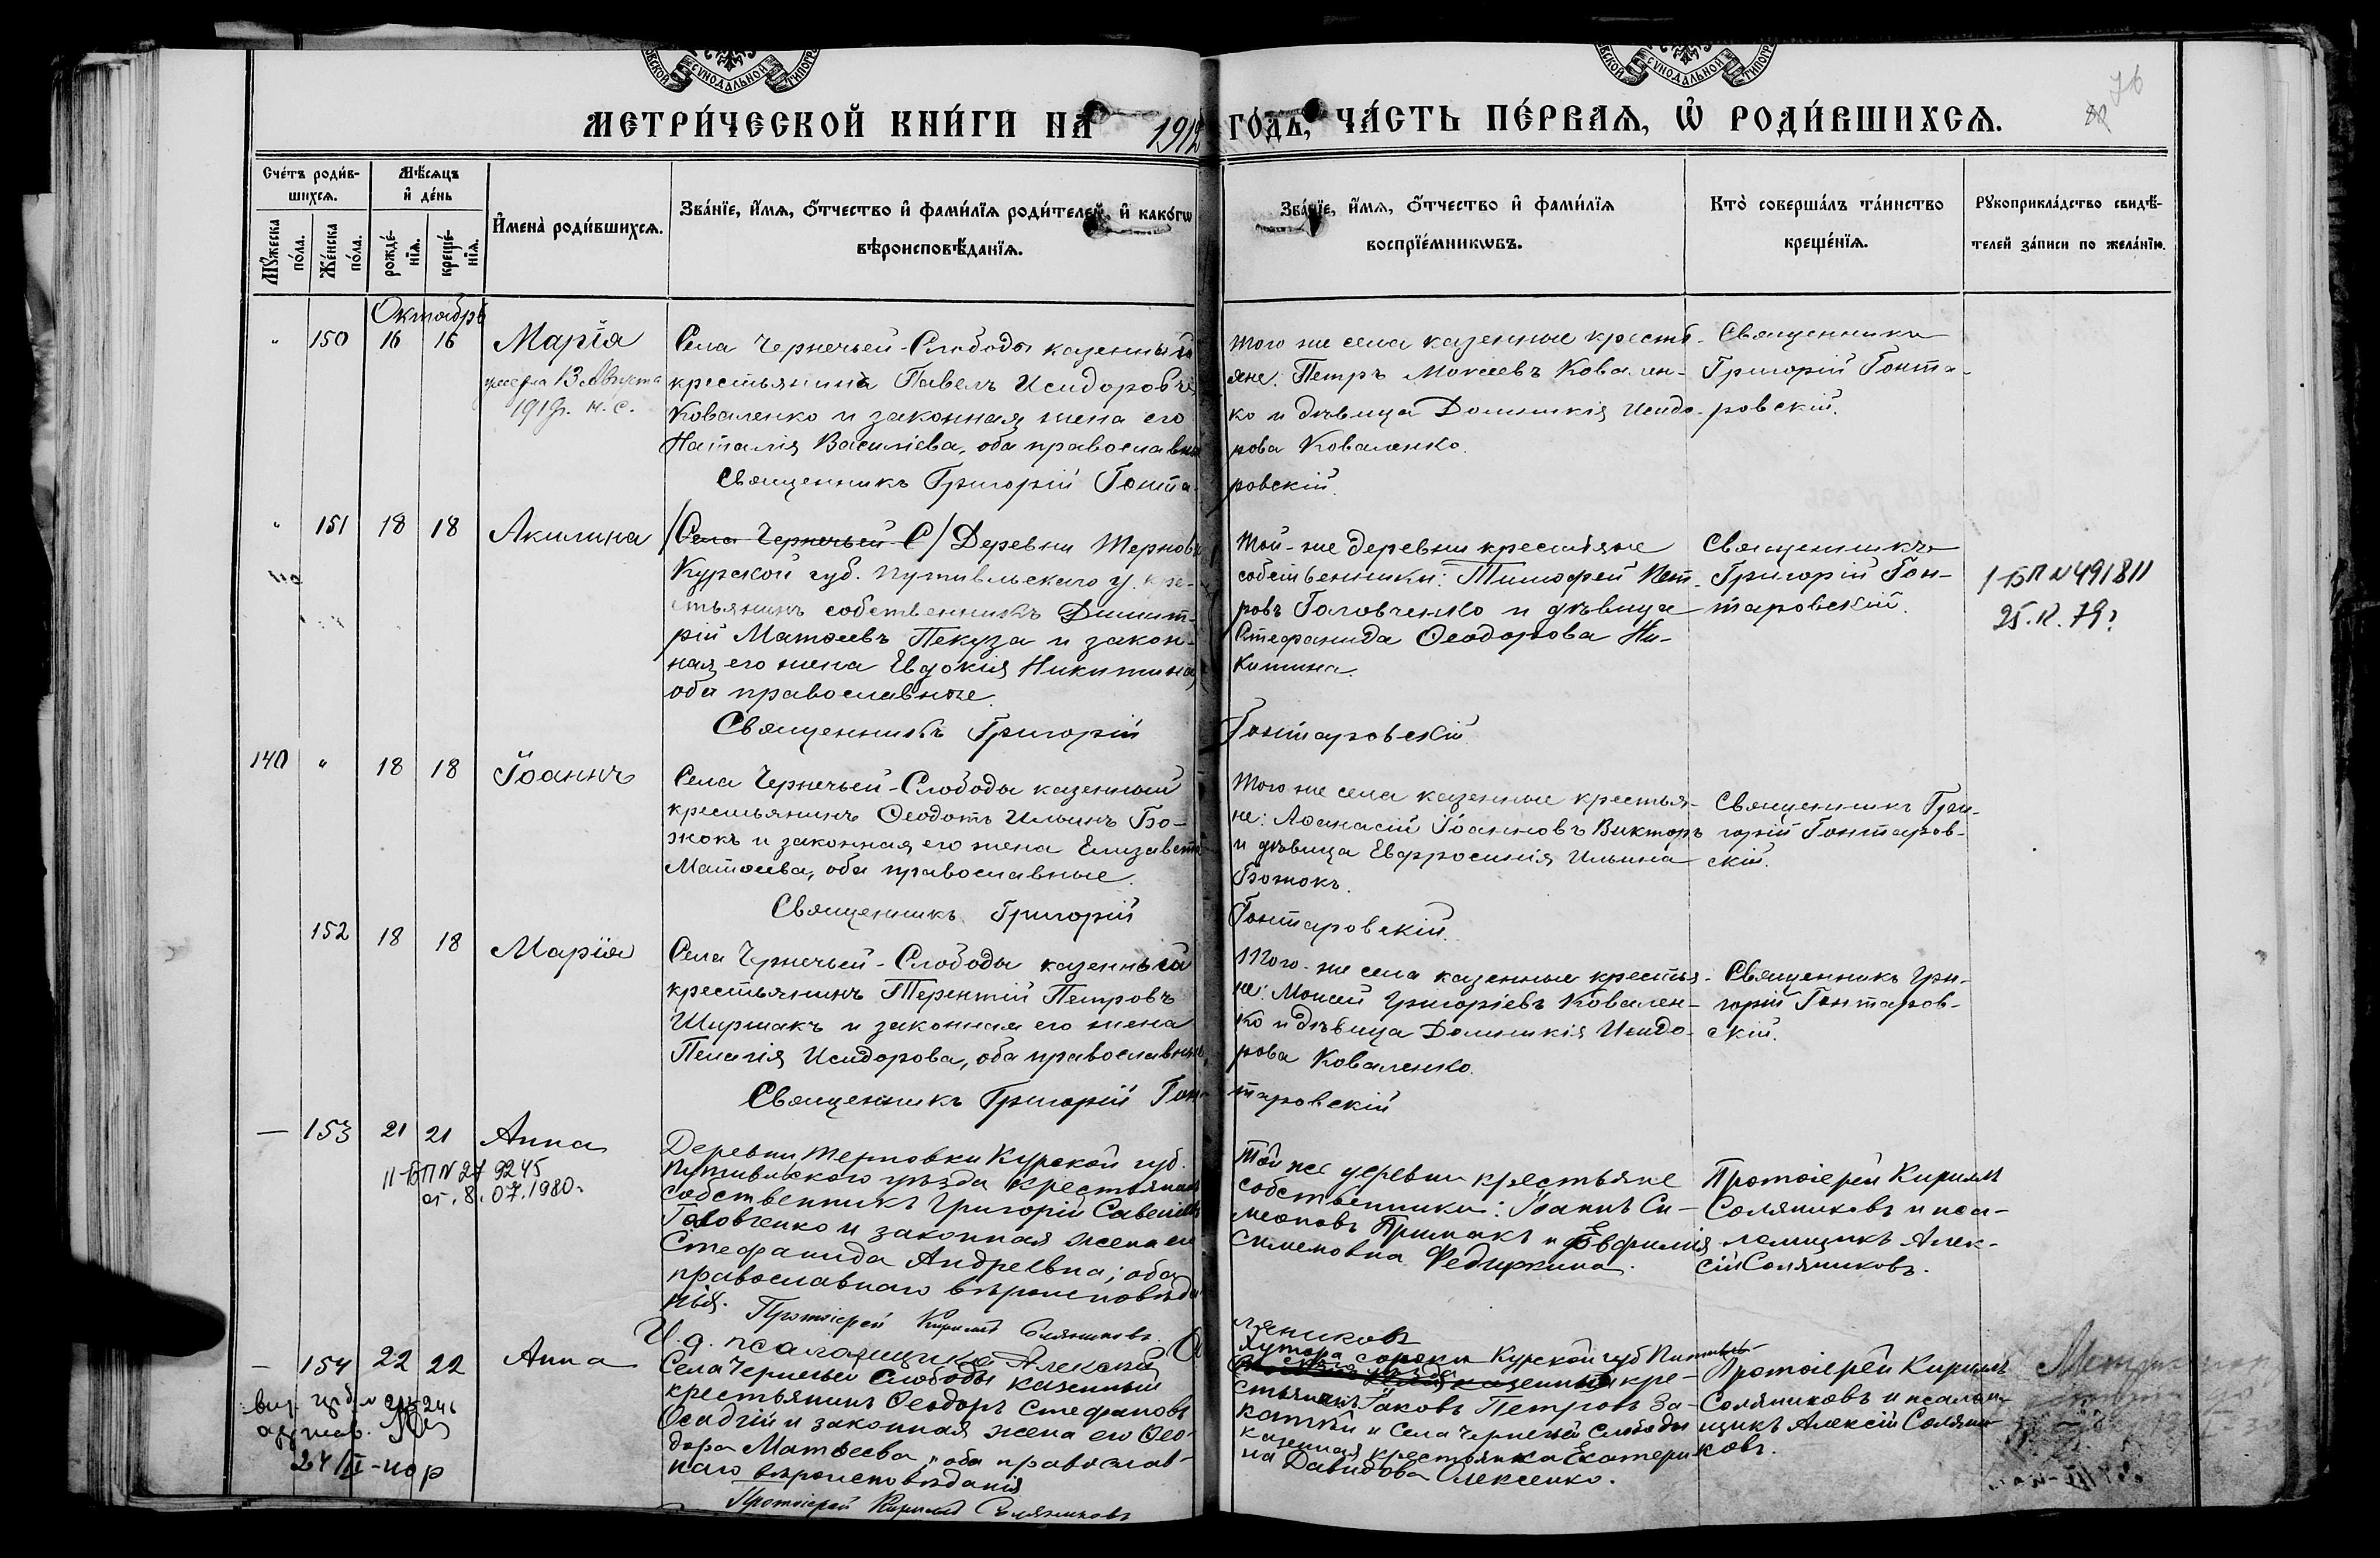 СѴНОДАЛЬНОЙ
СѴНОДАЛЬНОЙ
МЕТРИ́ЧЕСКОЙ КНИ́ГИ НА 1912 ГО́ДЪ, ЧА́СТЬ ПЕ́РВАѦ, Ѽ РОДИ́ВШИХСѦ.
76
Сче́тъ роди́в-
шихсѧ.
Мѣ́сѧцъ
и҆ де́нь
И҆мена̀ роди́вшихсѧ.
Зва́нїе, и҆́мѧ, ѻ҆́тчество и҆ фами́лїѧ роди́телей, и҆ како́гѡ
вѣроисповѣ́данїѧ.
Зва́нїе, и҆́мѧ, ѻ҆́тчество и҆ фами́лїѧ
воспрїе́мникѡвъ.
Кто̀ соверша́лъ та́инство
креще́нїѧ.
Рꙋкоприкла́дство свидѣ́-
телей за́писи по жела́нїю.
Мꙋ́жеска
по́ла.
Же́нска
по́ла.
рожде́-
нїѧ.
креще́-
нїѧ.
Октябрь
150 16 16 Марія
умерла 13 Августа
1919г. н. с.
Села Чернечьей-Слободы казенный
крестьянинъ Павелъ Исидоровъ
Коваленко и законная жена его
Наталія Василіева, оба православные
Священникъ Григорій Гонта-
того же села казенные кресть-
яне: Петръ Моисеевъ Ковален-
ко и дѣвица Домникія Исидо-
рова Коваленко.
ровскій.
Священникъ
Григорій Гонта-
ровскій.
151 18 18 Акилина
/Села Чернечьей С/ Деревни Терновки
Курской губ. Путивльскаго у. кре-
стьянинъ собственникъ Димит-
рій Матѳеевъ Пекуза и закон-
ная его жена Евдокія Никитина,
оба православные.
Священникъ Григорій
Той-же деревни крестьяне
собственники: Тимофей Пет-
ровъ Головченко и дѣвица
Стефанида Ѳеодорова Ни-
китина.
Гонтаровскій
Священникъ
Григорій Гон-
таровскій.
I-БП N 491811
25.IX.79г
140 18 18 Іоаннъ
Села Чернечьей-Слободы казенный
крестьянинъ Ѳеодотъ Ильинъ Бо-
жокъ и законная его жена Елизавета
Матѳеева, оба православные.
Священникъ Григорій
Того же села казенные крестья-
не: Аѳанасій Іоанновъ Викторъ
и дѣвица Евфросинія Ильина
Божокъ.
Гонтаровскій.
Священникъ Гри-
горій Гонтаров-
скій.
152 18 18 Марія
Села Чернечьей-Слободы казенный
крестьянинъ Терентій Петровъ
Ширшакъ и законная его жена
Пелагія Исидорова, оба православные,
Священникъ Григорій Гон-
Того-же села казенные крестья-
не: Моисей Григоріевъ Ковален-
ко и дѣвица Домникія Исидо-
рова Коваленко.
таровскій
Священникъ Гри-
горій Гонтаров-
скій.
— 153 21 21 Анна
II-БП N 279245
от. 8.07.1980г
Деревни Терновки Курской губ.
Путивльского уѣзда крестьянинъ
собственникъ Григорій Савельевъ
Головченко и законная жена его
Стефанида Андреевна; оба
православнаго вѣроисповѣда-
нія.
Протоіерей Кириллъ Соляниковъ.
И. д. псаломщика Алексѣй Со-
Той же деревни крестьяне
собственники: Іоаннъ Си-
меоновъ Примакъ и Евфимія
Симеоновна Федиркина.
ляниковъ
Протоіерей Кириллъ
Соляниковъ и пса-
ломщикъ Алек-
сій Соляниковъ.
— 154 22 22 Анна
Села Чернечьей Слободы казенный
крестьянинъ Ѳеодоръ Стефановъ
Осадчій и законная жена его Ѳео-
дора Матѳеева, оба православ-
наго вѣроисповѣданія
Протоіерей Кириллъ Соляниковъ
хутора Сороки Курской губ Путивльс.
казенный кре-
стьянинъ Іаковъ Петровъ За-
каткій и Села Чернечей Слободы
казенная крестьянка Екатери-
на Давидова Олексенко.
Протоіерей Кириллъ
Соляниковъ и псалом-
щикъ Алексій Соляни-
ковъ.
24/II-